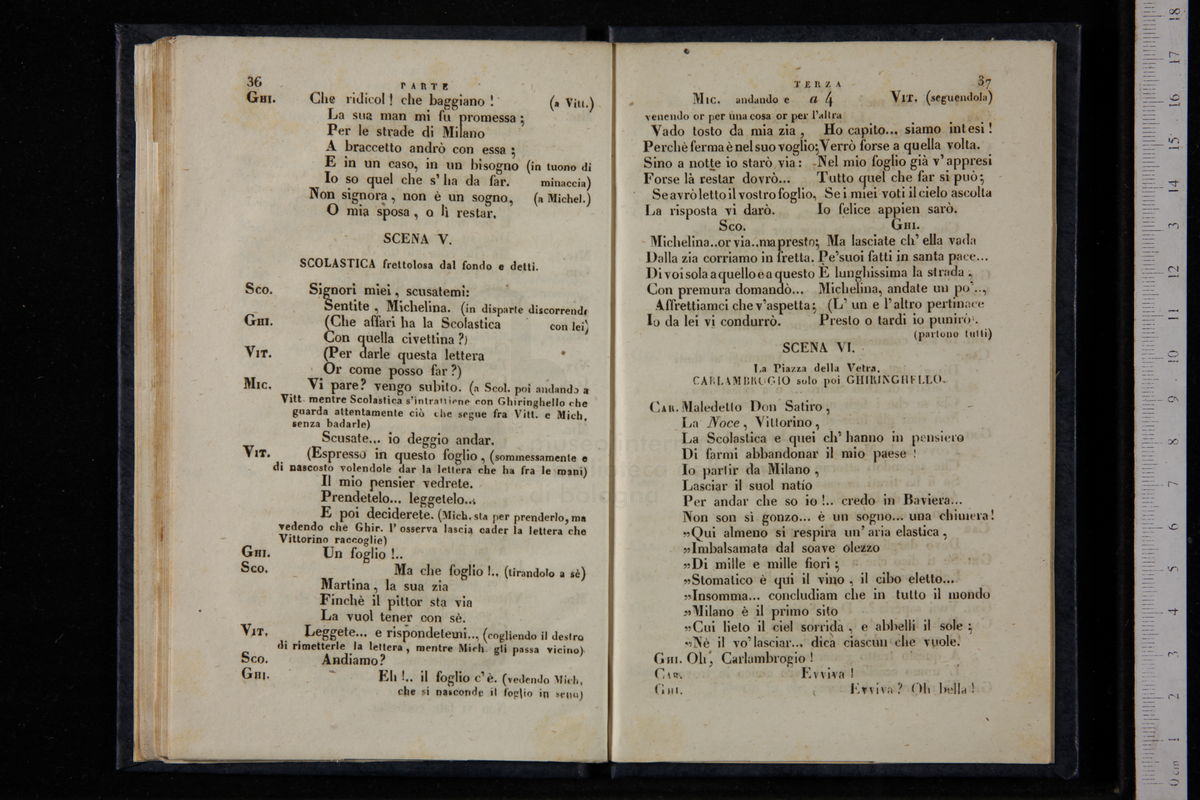 36
PARTE
GHI. Che ridicol! che baggiano! (a Vitt.)
La sua man mi fu promessa;
Per le strade di Milano
A braccetto andrò con essa;
E in un caso, in un bisogno (in tuono di
Io so quel che s'ha da far. minaccia)
Non signora, non è un sogno, (a Michel.)
O mia sposa, o lì restar.
SCENA V.
SCOLASTICA frettolosa dal fondo e detti.
SCO. Signori miei, scusatemi:
Sentite, Michelina. (in disparte discorrendo
GHI. (Che affari ha la Scolastica con lei)
Con quella civettina?)
VIT. (Per darle questa lettera
Or come posso far?)
MIC. Vi pare? vengo subito. (a Scol. poi andando a
Vitt. mentre Scolastica s'intrattiene con Ghiringhello che
guarda attentamente ciò che segue fra Vitt. e Mich.
senza badarle)
Scusate... io deggio andar.
VIT. (Espresso in questo foglio, (sommessamente e
di nascosto volendole dar la lettera che ha fra le mani)
Il mio pensier vedrete.
Prendetelo... leggetelo...
E poi deciderete. (Mich. sta per prenderlo, ma
vedendo che Ghir. l'osserva lascia cader la lettera che
Vittorino raccoglie)
GHI. Un foglio!..
SCO. Ma che foglio!.. (tirandolo a sè)
Martina, la sua zia
Finchè il pittor sta via
La vuol tener con sè.
VIT. Leggete... e rispondetemi... (cogliendo il destro
di rimetterle la lettera, mentre Mich. gli passa vicino)
SCO. Andiamo?
GHI. Eh!.. il foglio c'è. (vedendo Mich.
che si nasconde il foglio in seno)
TERZA
37
MIC. andando e a 4 VIT. (seguendola)
venendo or per una cosa or per l'altra
Vado tosto da mia zia, Ho capito... siamo intesi!
Perchè ferma è nel suo voglio; Verrò forse a quella volta.
Sino a notte io starò via: Nel mio foglio già v'appresi
Forse là restar dovrò... Tutto quel che far si può;
Se avrò letto il vostro foglio, Se i miei voti il cielo ascolta
La risposta vi darò. Io felice appien sarò.
SCO. GHI.
Michelina..or via..ma presto; Ma lasciate ch'ella vada
Dalla zia corriamo in fretta. Pe'suoi fatti in santa pace...
Di voi sola a quello e a questo È lunghissima la strada.
Con premura domandò... Michelina, andate un po'..,
Affrettiamci che v'aspetta; (L'un e l'altro pertinace
Io da lei vi condurrò. Presto o tardi io punirò.
(partono tutti)
SCENA VI.
La Piazza della Vetra.
CARLAMBROGIO solo poi GHIRINGHELLO.
CAR. Maledetto Don Satiro,
La Noce, Vittorino,
La Scolastica e quei ch'hanno in pensiero
Di farmi abbandonar il mio paese!
Io partir da Milano,
Lasciar il suol natio
Per andar che so io!.. credo in Baviera...
Non son sì gonzo... è un sogno... una chimera!
„Qui almeno si respira un'aria elastica,
„Imbalsamata dal soave olezzo
„Di mille e mille fiori;
„Stomatico è qui il vino, il cibo eletto...
„Insomma... concludiam che in tutto il mondo
„Milano è il primo sito
„Cui lieto il ciel sorrida, e abbelli il sole;
„Nè il vo'lasciar... dica ciascun che vuole.
GHI. Oh, Carlambrogio!
CAR. Evviva!
GHI. Evviva? Oh bella!
0 cm 1 2 3 4 5 6 7 8 9 10 11 12 13 14 15 16 17 18